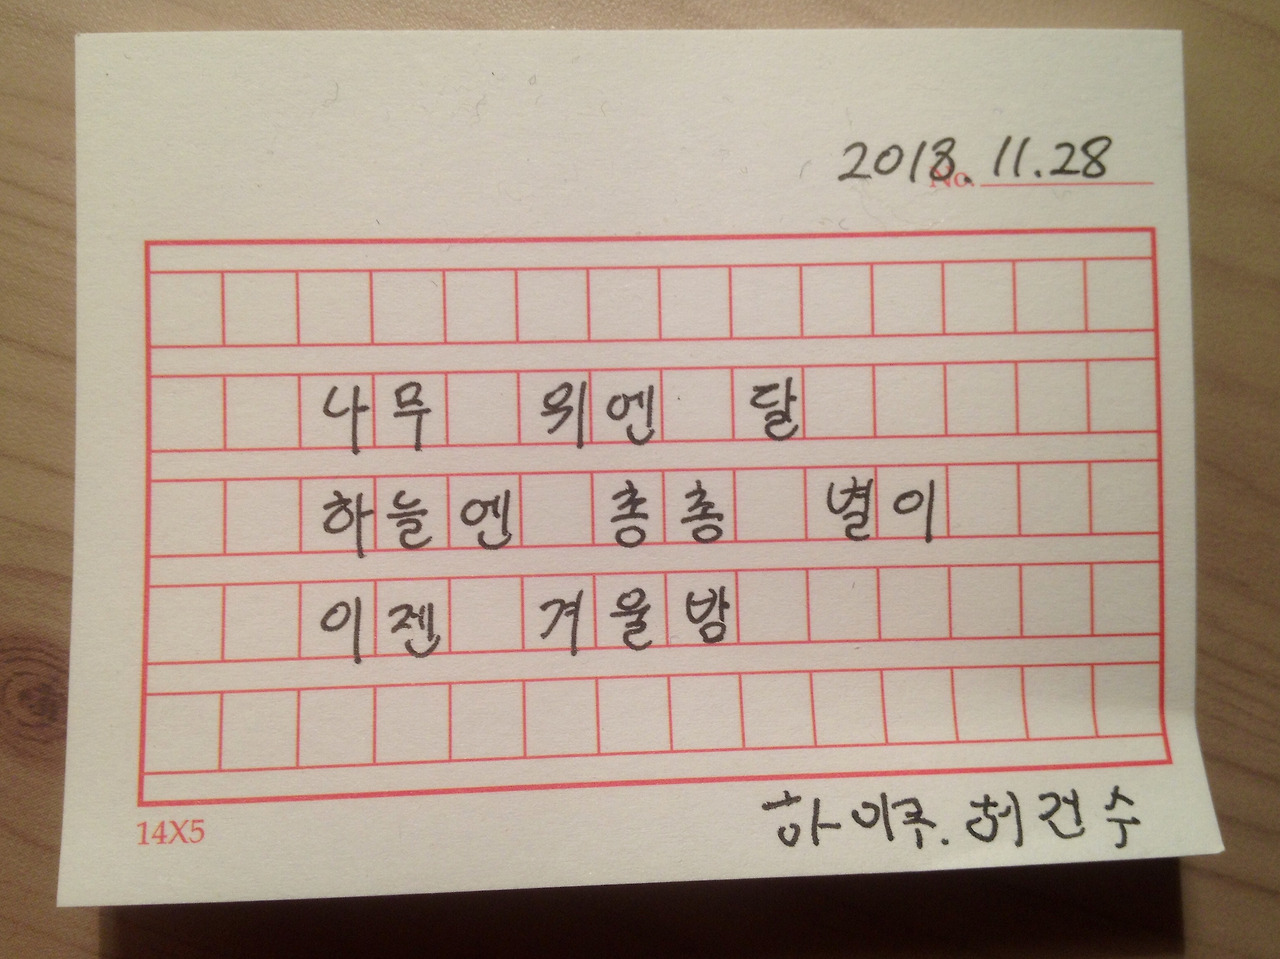 2018.11.28
No.
나무 위엔 달
하늘엔 총총 별이
이젠 겨울밤
14X5
하이쿠. 허건수